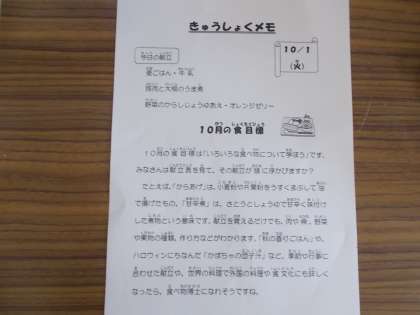 きゅうしょくメモ
10/1
(火)
今日の献立
麦ごはん・牛乳
豚肉と大根のうま煮
野菜のからしじょうゆあえ・オレンジゼリー
10月の食目標
10月の食目標は「いろいろな食べ物について学ぼう」です。
みなさんは献立表を見て、その献立が頭に浮かびますか?
たとえば、「からあげ」は、小麦粉や片栗粉をうすくまぶして油
で揚げたもの。「甘辛煮」は、さとうとしょうゆで甘辛く味付け
した煮物という意味です。献立を覚えるだけでも、肉や魚、野菜
や果物の種類、作り方などがわかります。「秋の香りごはん」や、
ハロウィンにちなんだ「かぼちゃの団子汁」など、季節や行事に
合わせた献立や、世界の料理で外国の料理や食文化にも詳しく
なったら、食べ物博士になれそうですね。